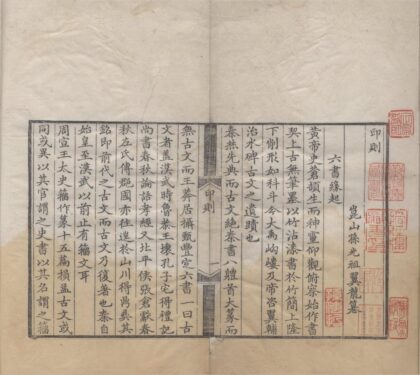 印則
崑山孫光祖翼龍纂
六書緣起
黃帝史倉頡生而神靈仰觀俯察始作書
契上古無筆墨以竹沾漆書於竹簡上隆
下削形如科斗今大禹岣嶁及帝啓翼輔
治水碑古文之遺蹟也
秦燕先典而古文絕秦書八體首大篆而
無古文而王莽居攝甄豐定六書一曰古
文者蓋漢武時魯恭王壞孔子宅得禮記
尚書春秋論語孝經又北平侯張倉獻春
秋左氏傳郡國亦往往於山川得鼎彝其
銘即前代之古文而古文乃復著也秦自
始皇至漢武以前止有籀文耳
周宣王太史籀作篆十五篇損益古文或
同或異以其官謂之史書以其名謂之籀
印則
一